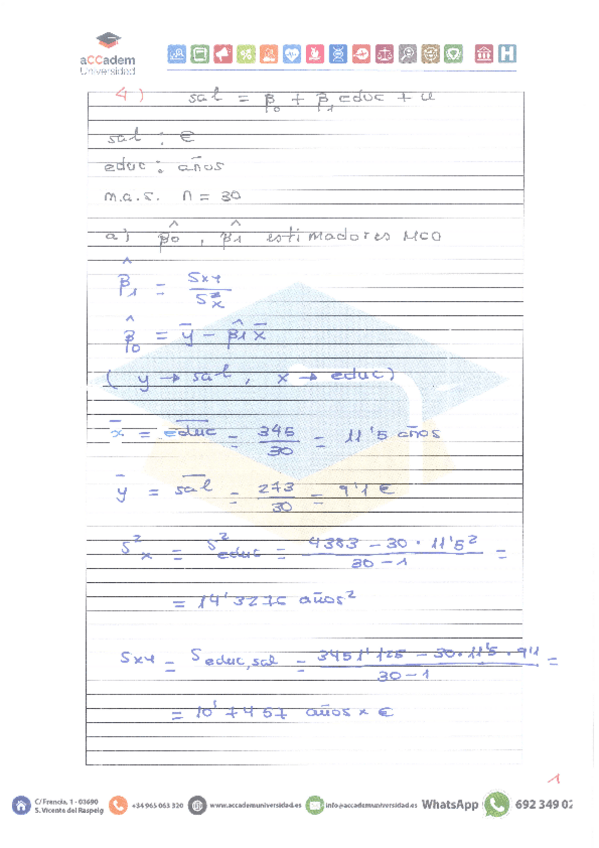 aCCadem
Universidad
4) sal = β0 + β1 educ + u
sal : €
educ : años
m.a.s. n = 30
a) β̂0 , β̂1 estimadores MCO
β̂1 = Sxy / S²x
β̂0 = ȳ - β̂1 x̄
( y → sal , x → educ)
x̄ = educ = 345 / 30 = 11'5 años
ȳ = sal = 273 / 30 = 9'1 €
S²x = S²educ = 4383 - 30 · 11'5² / 30 - 1 =
= 14'3276 años²
Sxy = Seduc,sal = 3451'125 - 30·11'5·9'1 / 30 - 1 =
= 10'7457 años x €
1
C/ Francia, 1 - 03690
S. Vicente del Raspeig
+34 965 063 320
www.accademuniversidad.es
info@accademuniversidad.es
WhatsApp
692 349 02